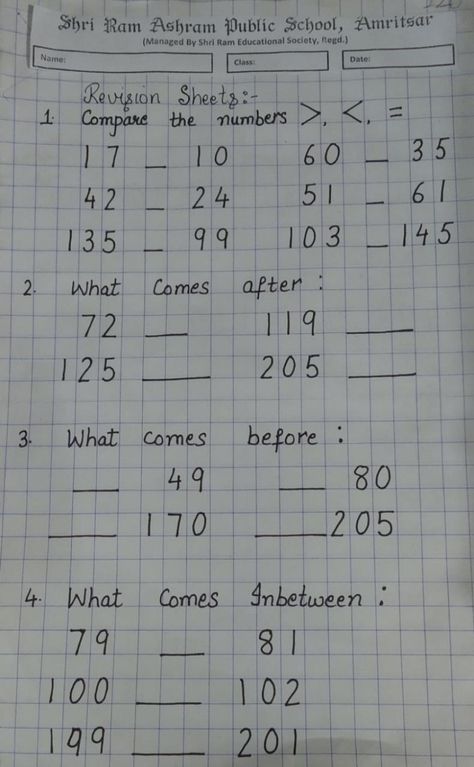 Shri Ram Ashram Public School, Amritsar
(Managed By Shri Ram Educational Society, Regd.)
Name: Class: Date:
Revision Sheets:-
1. Compare the numbers >, <, =
17 _ 10 60 _ 35
42 _ 24 51 _ 61
135 _ 99 103 _ 145
2. What Comes after :
72 __ 119 __
125 __ 205 __
3. What comes before :
__ 49 __ 80
__ 170 __ 205
4. What Comes Inbetween :
79 __ 81
100 __ 102
199 __ 201